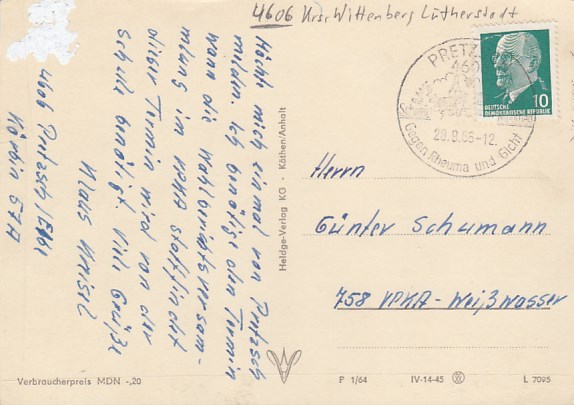 4606 Krsr Wittenberg Lutherstadt
PRETZ
460
Gegen Rheuma und Gicht
29.8.66-12.
DEUTSCHE
DEMOKRATISCHE REPUBLIK
10
Möcht mich einmal von Pretzsch
melden. Ich benötige den Termin
wann die Wahlberichtsversam-
mlung im VPKA stattfindet
dieser Termin wird von der
Schule benötigt. Viele Grüße
Klaus
4606 Pretzsch/Elbe
57A
Heldge-Verlag KG · Köthen/Anhalt
Herrn
Günter Schumann
758 VPKA-Weißwasser
Verbraucherpreis MDN -,20
P 1/64
IV-14-45
L 7095